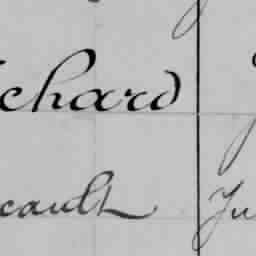 chard
cault Ju